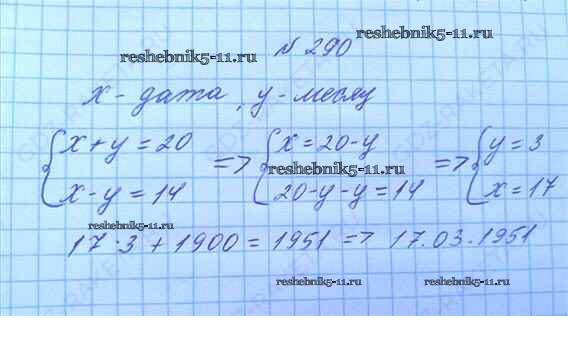 № 290
reshebnik5-11.ru
reshebnik5-11.ru
x - дата, y - месяц
{ x + y = 20 => { x = 20 - y => { y = 3
x - y = 14 20 - y - y = 14 x = 17
reshebnik5-11.ru
reshebnik5-11.ru
17 · 3 + 1900 = 1951 => 17.03.1951
reshebnik5-11.ru
reshebnik5-11.ru